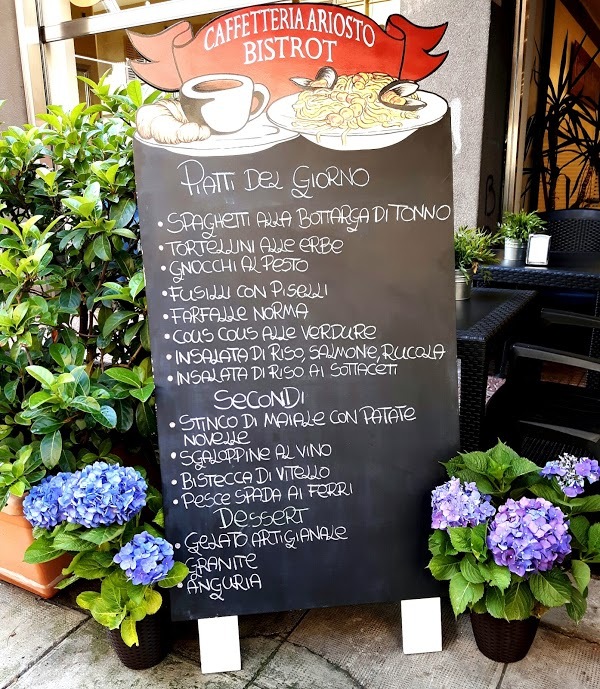 CAFFETTERIA ARIOSTO
BISTROT
PIATTI DEL GIORNO
• SPAGHETTI ALLA BOTTARGA DI TONNO
• TORTELLINI ALLE ERBE
• GNOCCHI AL PESTO
• FUSILLI CON PISELLI
• FARFALLE NORMA
• COUS COUS ALLE VERDURE
• INSALATA DI RISO, SALMONE, RUCOLA
• INSALATA DI RISO AI SOTTACETI
SECONDI
• STINCO DI MAIALE CON PATATE
NOVELLE
• SGALOPPINE AL VINO
• BISTECCA DI VITELLO
• PESCE SPADA AI FERRI
DESSERT
• GELATO ARTIGIANALE
• GRANITE
• ANGURIA